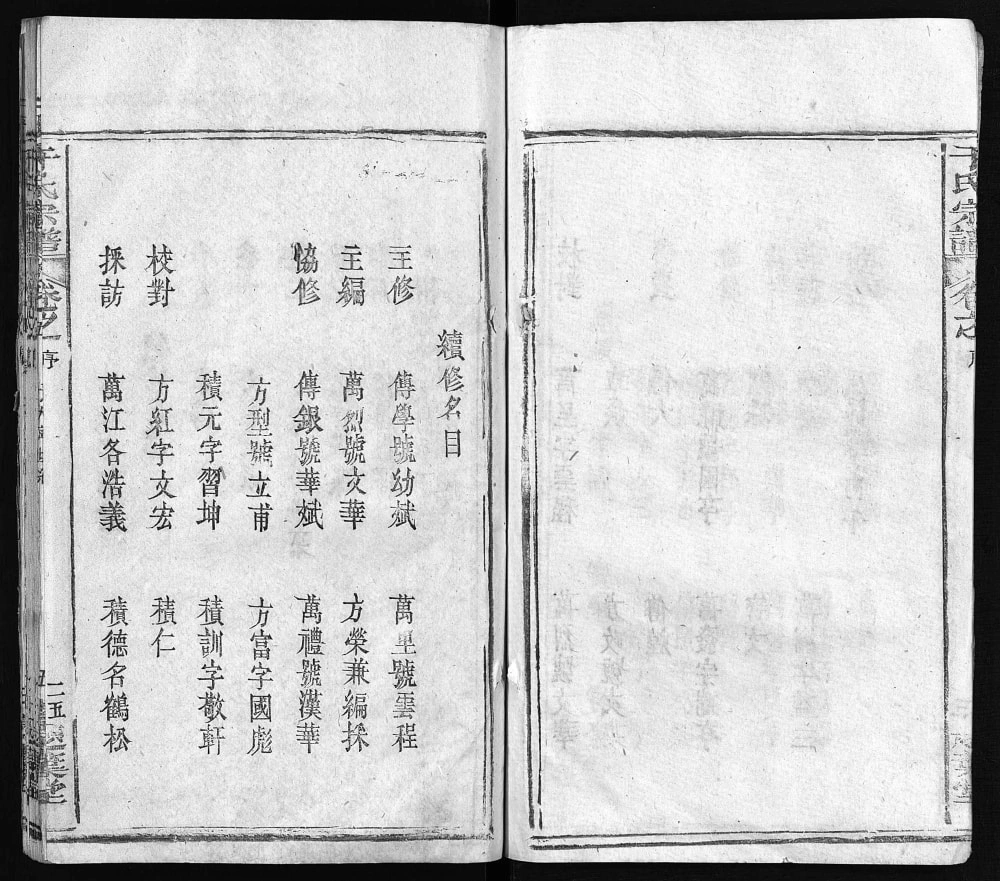 續修名目
主修 傳學號幼斌 萬里號雲程
主編 萬烈號文華 方榮兼編採
恊修 傳銀號華斌 萬禮號漢華
方型號立甫 方富字國彪
積元字習坤 積訓字敬軒
校對 方紅字文宏 積仁
採訪 萬江各浩義 積德名鶴松
于氏宗譜 卷之 序
二五
于氏宗譜 卷之